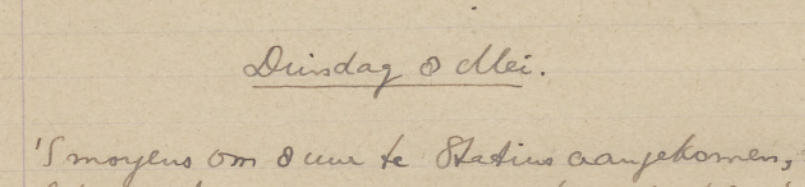 Dinsdag 8 Mei.
'S morgens om 8 uur te Statius aangekomen,